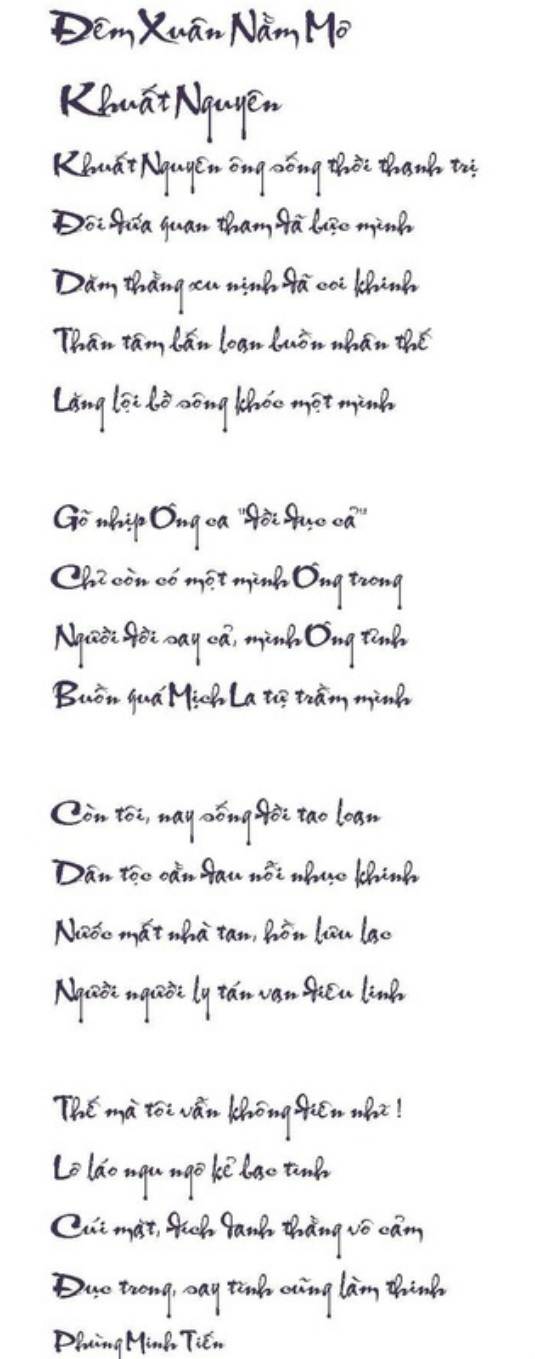 Đêm Xuân Nằm Mơ
Khuất Nguyên
Khuất Nguyên ông sống thời thanh trị
Đôi đứa quan tham đã bực mình
Dăm thằng xu nịnh đã coi khinh
Thân tâm bấn loạn buồn nhân thế
Lặng lội bờ sông khóc một mình
Gõ nhịp Ông ca "đời đục cả"
Chỉ còn có một mình Ông trong
Người đời say cả, mình Ông tỉnh
Buồn quá Mịch La tự trầm mình
Còn tôi, nay sống đời tao loạn
Dân tộc oằn đau nỗi nhục khinh
Nước mất nhà tan, hồn lưu lạc
Người người ly tán vạn điêu linh
Thế mà tôi vẫn không điên nhĩ !
Lơ láo ngu ngơ kẻ bạc tình
Cúi mặt, đích danh thằng vô cảm
Đục trong, say tỉnh cũng làm thinh
Phùng Minh Tiến